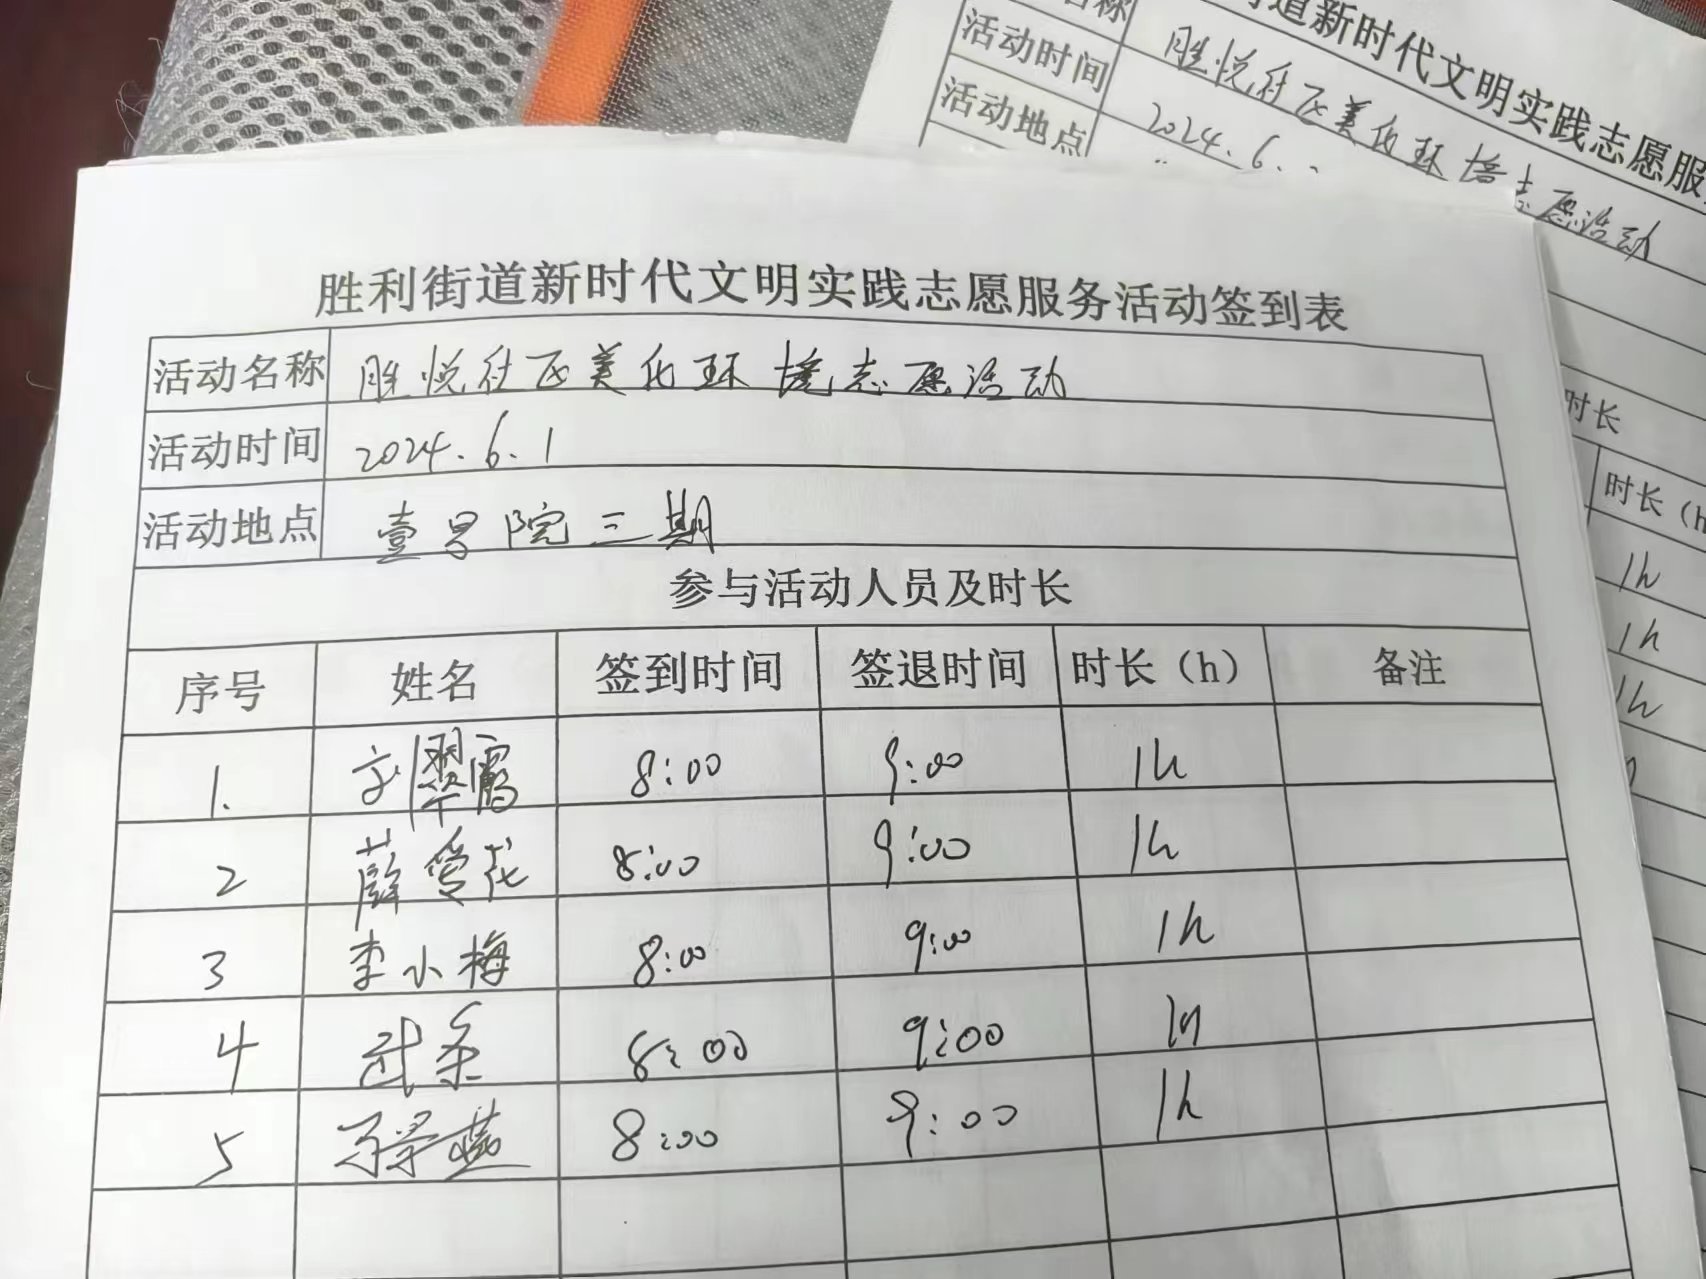 名称 胜悦社区美化环境志愿活动
街道新时代文明实践志愿服
活动时间 2024.6.
活动地点
胜利街道新时代文明实践志愿服务活动签到表
活动名称 胜悦社区美化环境志愿活动
活动时间 2024.6.1
活动地点 壹号院三期
参与活动人员及时长
序号 姓名 签到时间 签退时间 时长（h） 备注
1. 8:00 9:00 1h
2 薛爱花 8:00 9:00 1h
3 李小梅 8:00 9:00 1h
4 武杂 8:00 9:00 1h
5 8:00 9:00 1h
时长
时长（h
1h
1h
1h